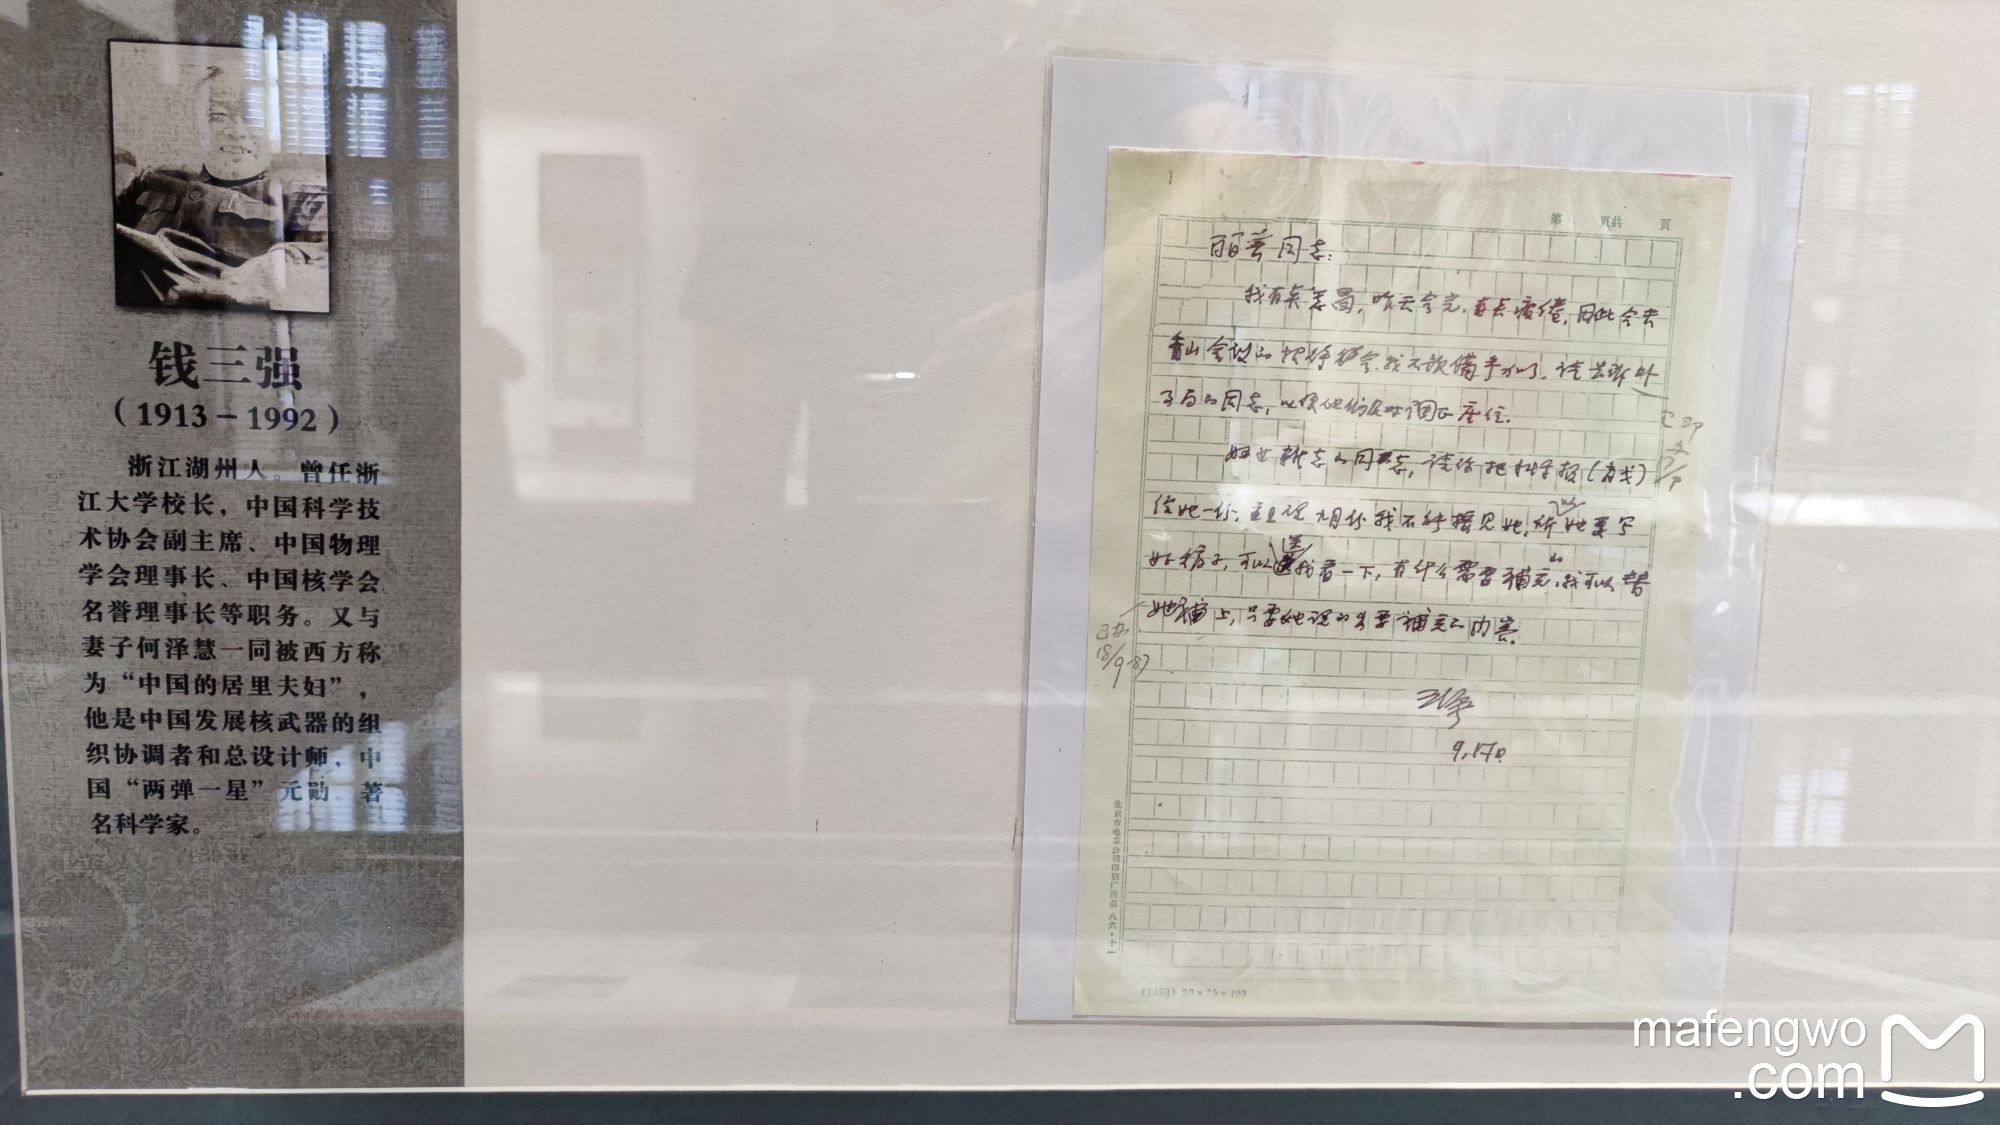 钱三强
（1913－1992）
浙江湖州人。曾任浙
江大学校长，中国科学技
术协会副主席、中国物理
学会理事长、中国核学会
名誉理事长等职务。又与
妻子何泽慧一同被西方称
为“中国的居里夫妇”，
他是中国发展核武器的组
织协调者和总设计师，中
国“两弹一星”元勋。著
名科学家。
第 页共 页
同志：
我有点 昨天会完，有点疲倦，因此今去
香山会议的 我不 准备参加了，请告
的同志，以便他们及时调正座位。
妇女 志的同志，请你把科学报（有我）
给她一份，并且说 我不能接见她，所以她要写
好稿子，可以送我看一下，有什么需要补充的，我可以替
她补上，只要她说明要补充的内容。
三强
9.17日
已办
18/9-87
北京市电车公司印刷厂出品 八六·十一
(1456) 20×20＝400
mafengwo
.com